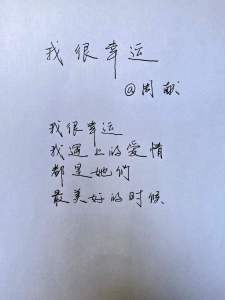 我很幸运
@周献
我很幸运
我遇上的爱情
都是她们
最美好的时候